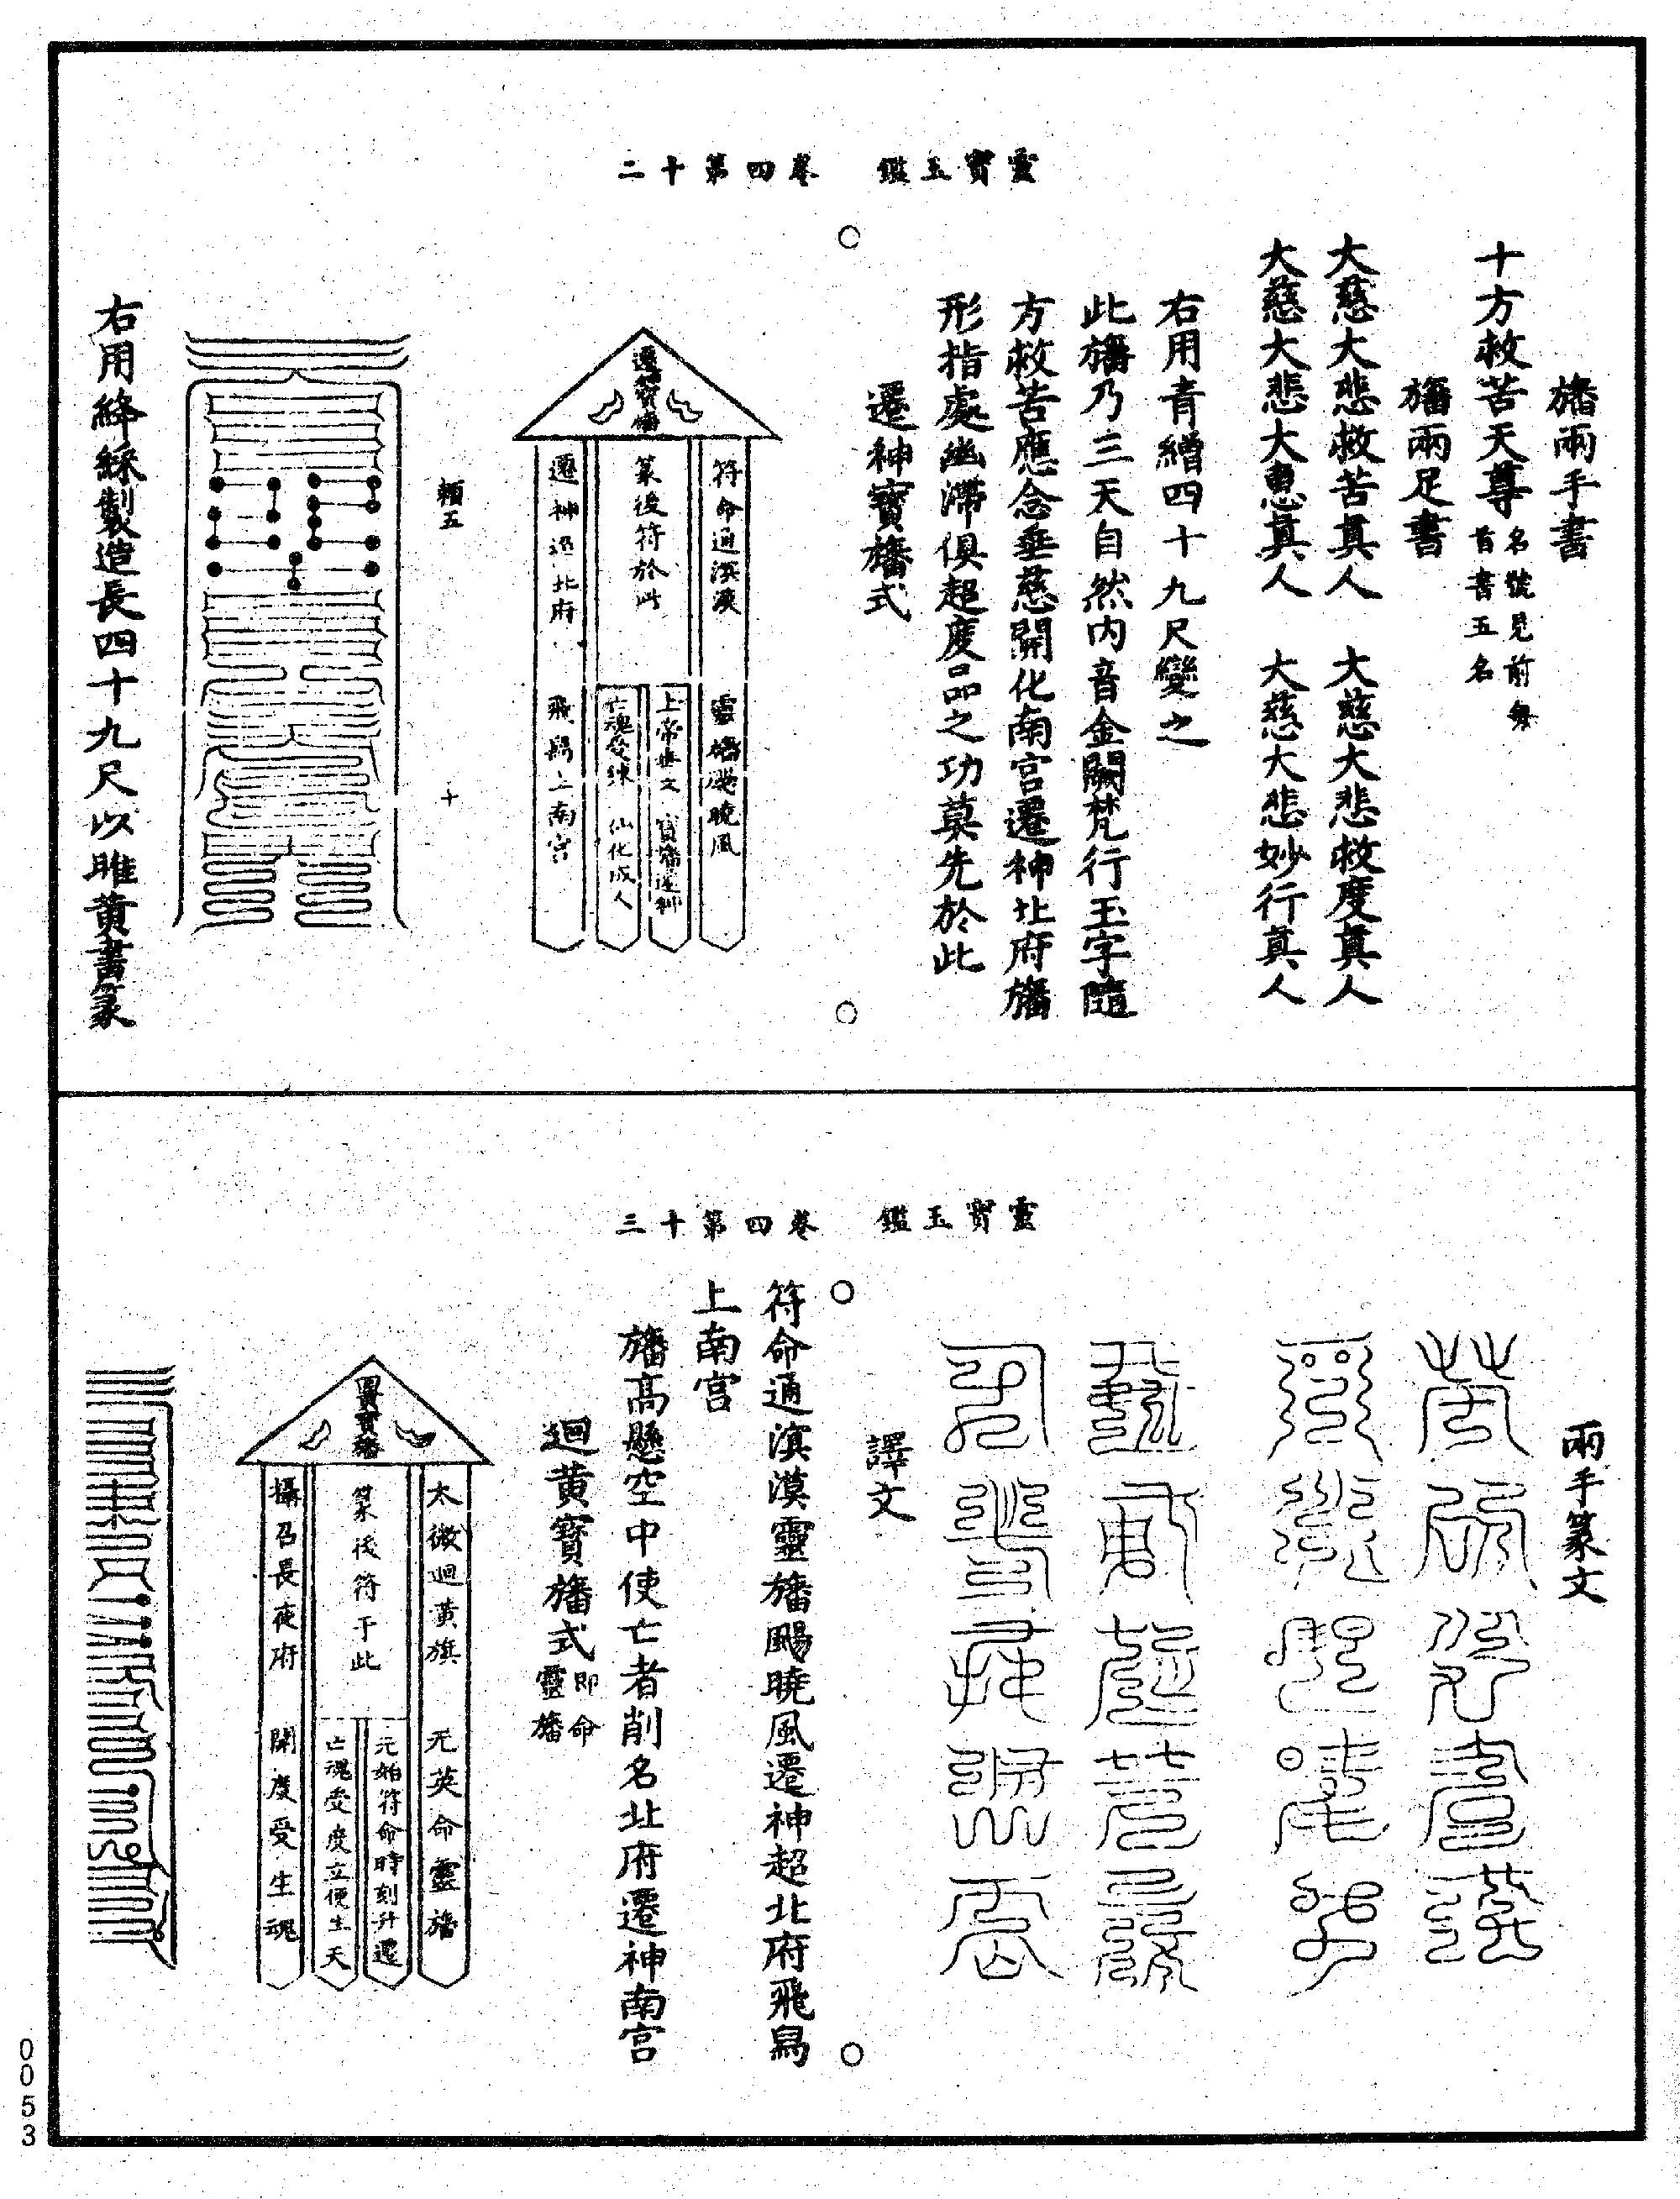 靈寶玉鑑　卷四第十二
旛兩手書
十方救苦天尊名號見前每首書五名
旛兩足書
大慈大悲救苦真人　大慈大悲救度真人
大慈大悲大惠真人　大慈大悲妙行真人
右用青繒四十九尺變之
此旛乃三天自然内音金闕梵行玉字隨
方救苦應念垂慈開化南宮遷神北府旛
形指處幽滯俱超度品之功莫先於此
遷神寶旛式
遷神寶旛
符命通溟漠　靈旛颺曉風
篆後符於此
上帝
亡魂受煉　仙化成人
遷神超北府　飛舄上南宮
頼五
十
右用絳綵製造長四十九尺以雌黄書篆
靈寶玉鑑　卷四第十三
兩手篆文
譯文
符命通溟漠靈旛颺曉風遷神超北府飛舄
上南宮
旛高懸空中使亡者削名北府遷神南宮
迴黄寶旛式即命靈旛
迴黄寶旛
太微迴黄旗　无英命靈旛
篆後符于此
元始符命時刻升遷
亡魂受度立便生天
攝召長夜府　開度受生魂
0053